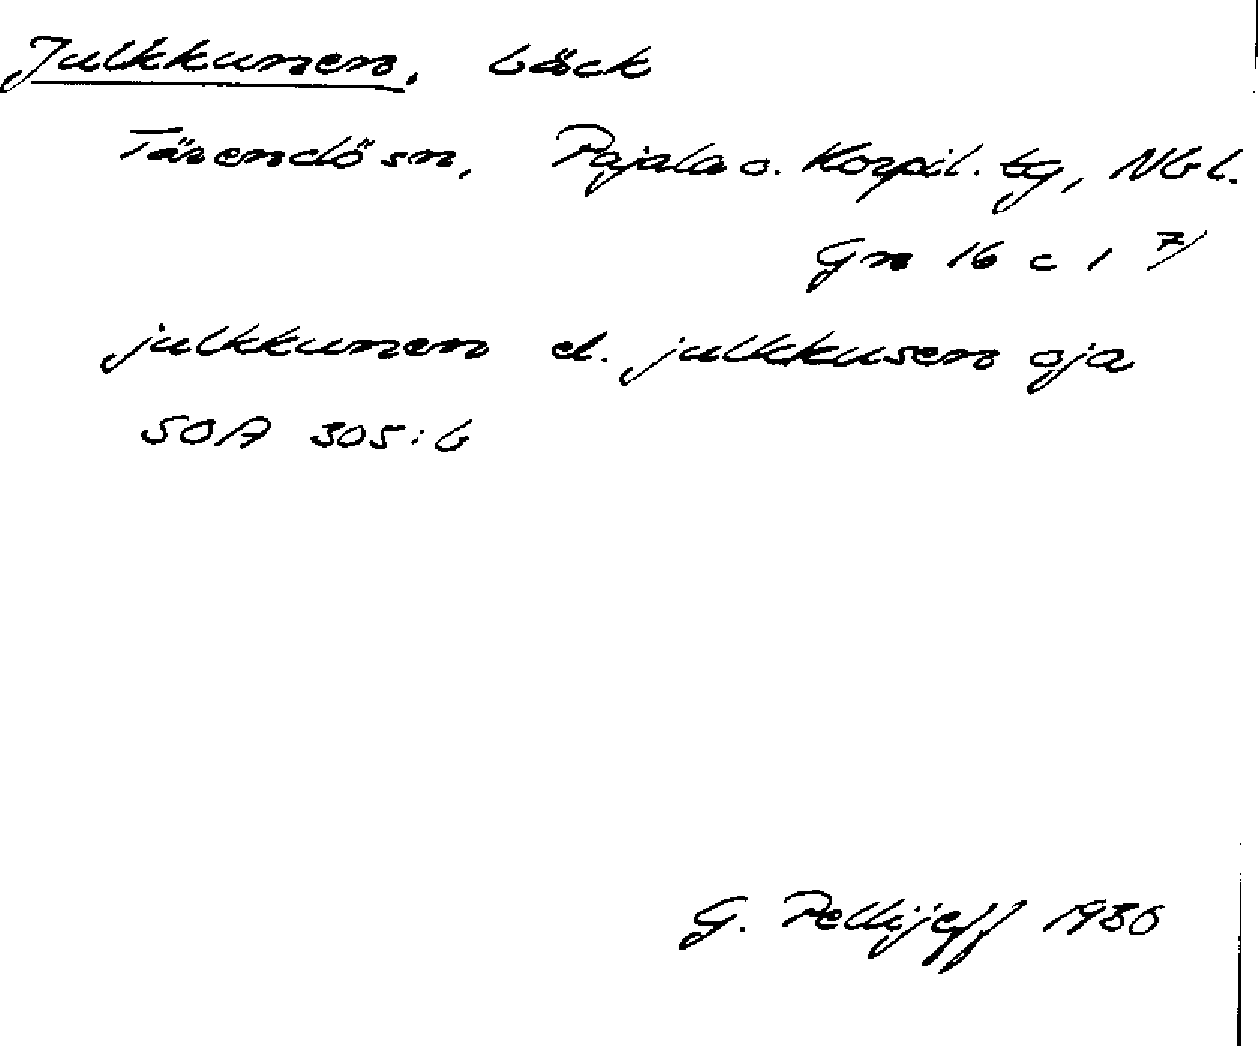 Julkkunen, bäck
Tärendö sn, Pajala o. Korpil. tg, Nbl.
Gn 16 c 1 7/
julkkunen el. julkkusen oja
SOA 305:6
G. Pellijeff 1930